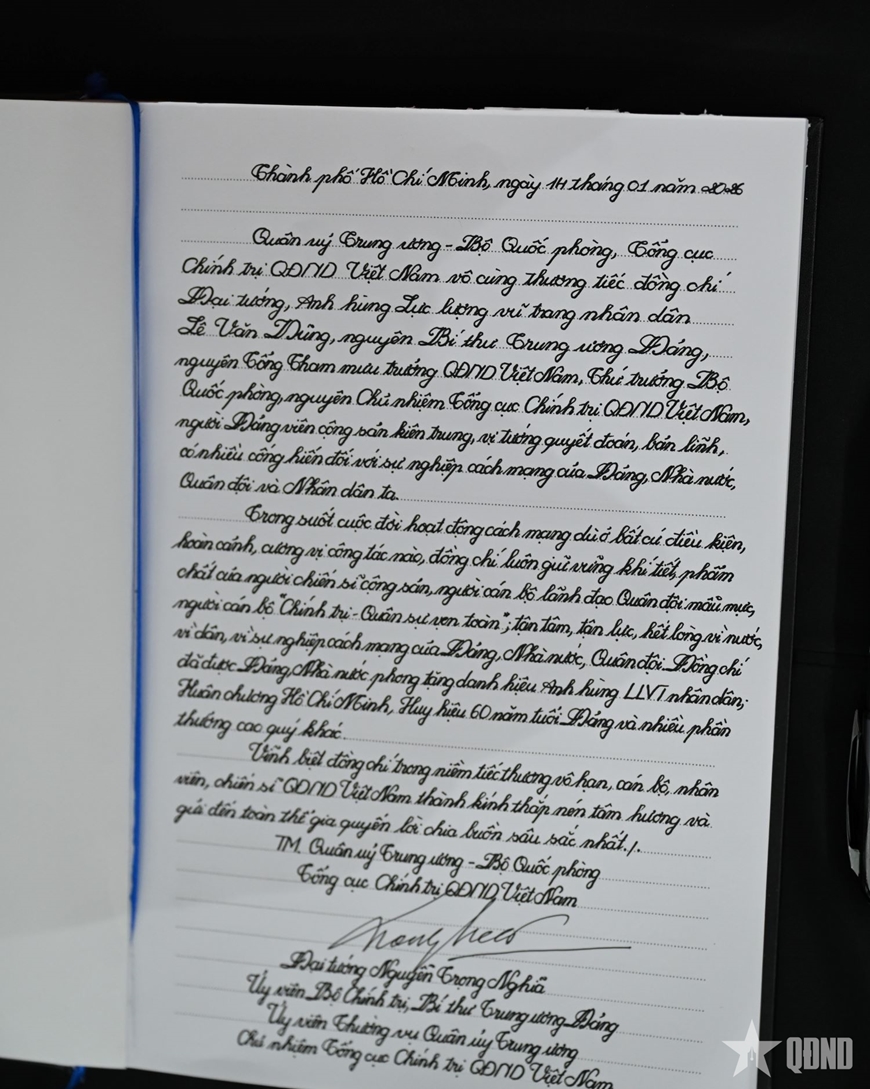 Thành phố Hồ Chí Minh, ngày 14 tháng 01 năm 2026
Quân uỷ Trung ương - Bộ Quốc phòng, Tổng cục
Chính trị QĐND Việt Nam vô cùng thương tiếc đồng chí
Đại tướng, Anh hùng Lực lượng vũ trang nhân dân
Lê Văn Dũng, nguyên Bí thư Trung ương Đảng,
nguyên Tổng Tham mưu trưởng QĐND Việt Nam, Thứ trưởng Bộ
Quốc phòng, nguyên Chủ nhiệm Tổng cục Chính trị QĐND Việt Nam,
người Đảng viên cộng sản kiên trung, vị tướng quyết đoán, bản lĩnh,
có nhiều cống hiến đối với sự nghiệp cách mạng của Đảng, Nhà nước,
Quân đội và Nhân dân ta.
Trong suốt cuộc đời hoạt động cách mạng dù ở bất cứ điều kiện,
hoàn cảnh, cương vị công tác nào, đồng chí luôn giữ vững khí tiết, phẩm
chất của người chiến sĩ cộng sản, người cán bộ lãnh đạo Quân đội mẫu mực,
người cán bộ "Chính trị - Quân sự vẹn toàn"; tận tâm, tận lực, hết lòng vì nước,
vì dân, vì sự nghiệp cách mạng của Đảng, Nhà nước, Quân đội. Đồng chí
đã được Đảng, Nhà nước phong tặng danh hiệu Anh hùng LLVT nhân dân;
Huân chương Hồ Chí Minh, Huy hiệu 60 năm tuổi Đảng và nhiều phần
thưởng cao quý khác.
Vĩnh biệt đồng chí trong niềm tiếc thương vô hạn, cán bộ, nhân
viên, chiến sĩ QĐND Việt Nam thành kính thắp nén tâm hương và
gửi đến toàn thể gia quyến lời chia buồn sâu sắc nhất./.
TM. Quân uỷ Trung ương - Bộ Quốc phòng
Tổng cục Chính trị QĐND Việt Nam
Đại tướng Nguyễn Trọng Nghĩa
Ủy viên Bộ Chính trị, Bí thư Trung ương Đảng
Ủy viên Thường vụ Quân ủy Trung ương
Chủ nhiệm Tổng cục Chính trị QĐND Việt Nam
QĐND